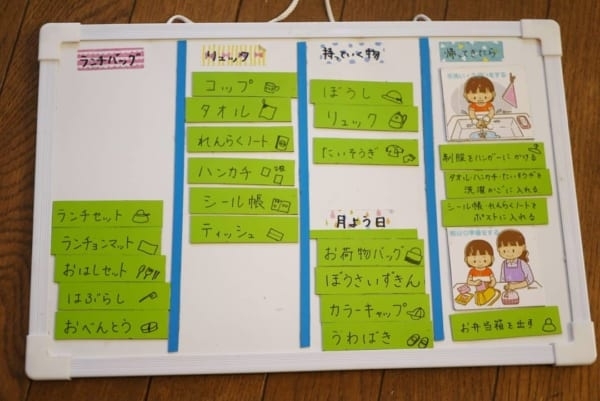 ランチバッグ
ランチセット
ランチョンマット
おはしセット
はぶらし
おべんとう
リュック
コップ
タオル
れんらくノート
ハンカチ
シール帳
ティッシュ
持っていく物
ぼうし
リュック
たいそうぎ
月よう日
お荷物バッグ
ぼうさいずきん
カラーキャップ
うわばき
帰ってきたら
制服をハンガーにかける
タオル・ハンカチ・たいそうぎを
洗濯かごに入れる
シール帳・れんらくノートを
ポストに入れる
お弁当箱を出す